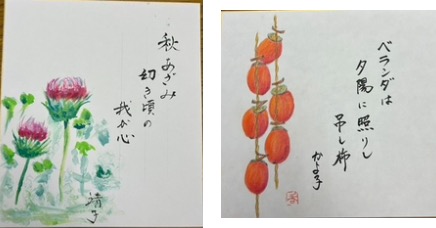 秋あざみ
幼き頃の
我が心
清子
ベランダは
夕陽に照りし
吊し柿